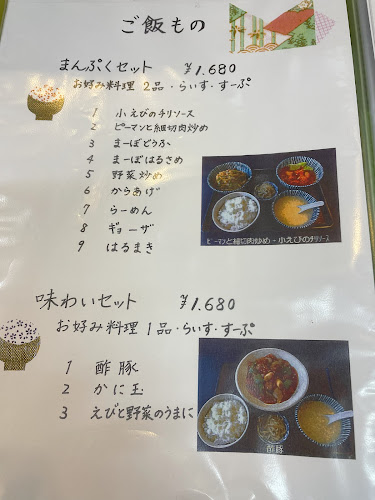 ご飯もの
まんぷくセット ¥1.680
お好み料理 2品・らいす・すーぷ
1 小えびのチリソース
2 ピーマンと細切肉炒め
3 まーぼどうふ
4 まーぼはるさめ
5 野菜炒め
6 からあげ
7 らーめん
8 ギョーザ
9 はるまき
ピーマンと細切肉炒め・小えびのチリソース
味わいセット ¥1.680
お好み料理 1品・らいす・すーぷ
1 酢豚
2 かに玉
3 えびと野菜のうまに
酢豚